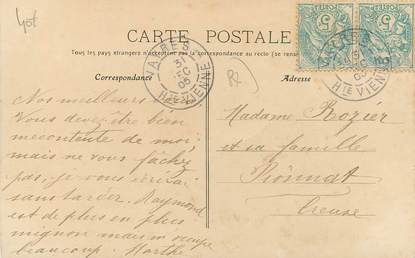 CARTE POSTALE
Tous les pays étrangers n'acceptent pas la correspondance au recto (se rens
Correspondance
Adresse
31
DEC
05
HTE VIENNE
Nos meilleurs
Vous devez être bien
mécontente de moi
mais ne vous fâchez
pas, je vous écrirai
sans tarder. Raymond
est de plus en plus
mignon mais m'occupe
beaucoup. Marthe
Madame Rozier
et sa famille
Bonnat
Creuse